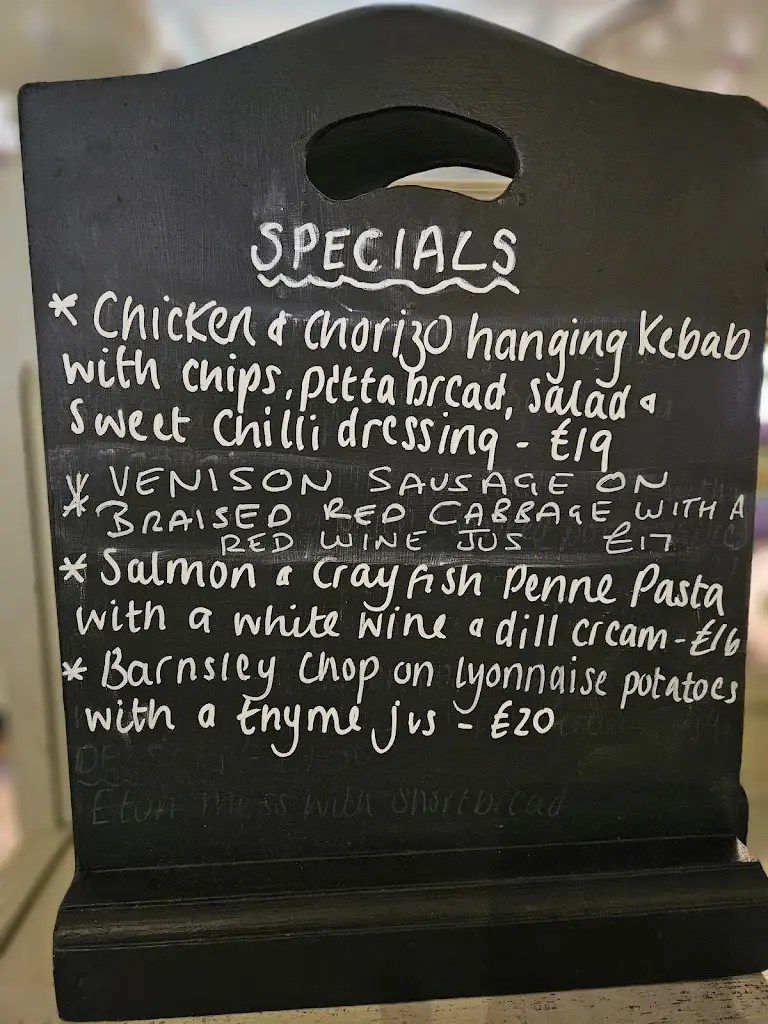 SPECIALS
* Chicken & Chorizo hanging Kebab
with chips, pitta bread, salad &
Sweet Chilli dressing - £19
* VENISON SAUSAGE ON
BRAISED RED CABBAGE WITH A
RED WINE JUS £17
* Salmon & Crayfish Penne Pasta
with a white wine & dill cream - £16
* Barnsley Chop on lyonnaise potatoes
with a thyme jus - £20
mess with shortbread